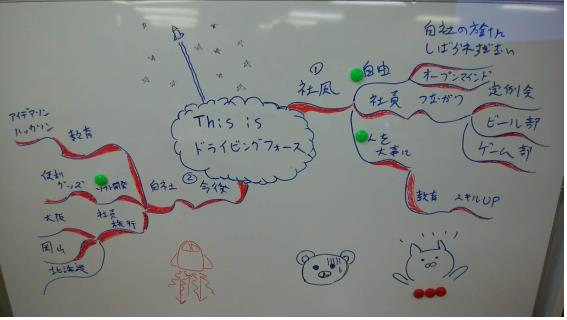 This is
ドライビングフォース
①
社風
自由
自社の方針
しばられすぎない
オープンマインド
社員
つながり
定例会
ビール部
ゲーム部
人を
大事に
教育
スキルUP
②
今後
自社
教育
アイデアソン
ハッカソン
ソフト開発
便利
グッズ
社員
旅行
大阪
岡山
北海道